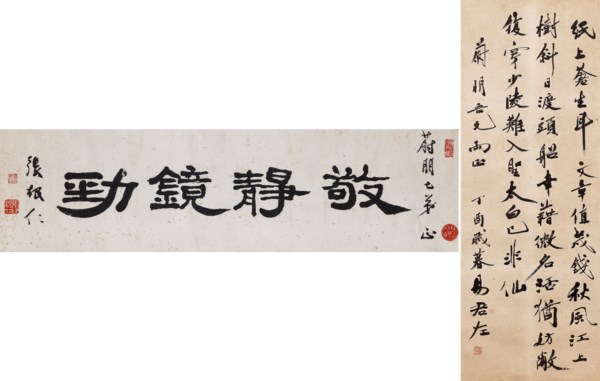 蔚朋七弟正
敬靜鏡勁
張根仁
紙上蒼生耳文章值幾錢秋風江上
樹斜日渡頭船幸藉微名活猶妨敝
履穿少陵難入聖太白已非仙
蔚朋吾兄兩正 丁酉歲暮易君左